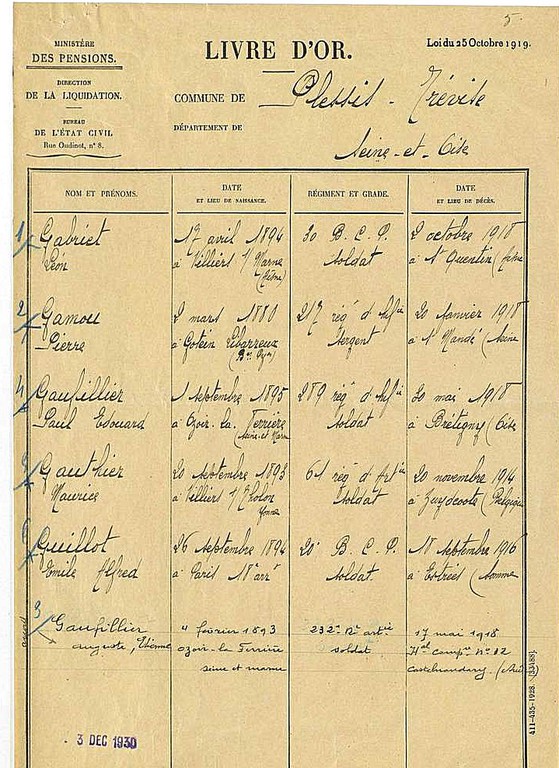 5.
MINISTÈRE
DES PENSIONS.
DIRECTION
DE LA LIQUIDATION.
BUREAU
DE L'ÉTAT CIVIL
Rue Oudinot, n° 8.
LIVRE D'OR.
Loi du 25 Octobre 1919.
COMMUNE DE Plessis - Trévise
DÉPARTEMENT DE
Seine-et-Oise
NOM ET PRÉNOMS.
DATE
ET LIEU DE NAISSANCE.
RÉGIMENT ET GRADE.
DATE
ET LIEU DE DÉCÈS.
1/ Gabriet 17 avril 1894 30 B. C. P. 2 octobre 1918
Léon à Villiers s/ Marne soldat à St Quentin (Aisne
(Aisne)
2/ Gamou 2 mars 1880 217 rég d'Inf ie 20 Janvier 1918
Pierre à Gotein Libarrenx Sergent à St Mandé (Seine
(Bses Pyr)
4/ Gaufillier 1 septembre 1895 289 rég d'Inf ie 30 mai 1918
Paul Edouard à Ozoir-la-Ferrière soldat à Brétigny (Oise
(Seine et Marne
5/ Gauthier 20 septembre 1893 61 rég d'Art ie 20 novembre 1914
Maurice à Villiers s/ Tholon soldat à Zuydcoote (Belgique
Yonne
6/ Guillot 26 septembre 1894 20e B. C. P. 18 septembre 1916
Emile Alfred à Paris 18e arrt soldat à Estrées (Somme
3/ Gaufillier " février 1893 232e Rt artie 17 mai 1918
auguste, Etienne ozoir-la Ferrière soldat Hal campe No 82
seine et marne Castelnaudary (Aude
3 DEC 1930
411-435-1928. [33188].